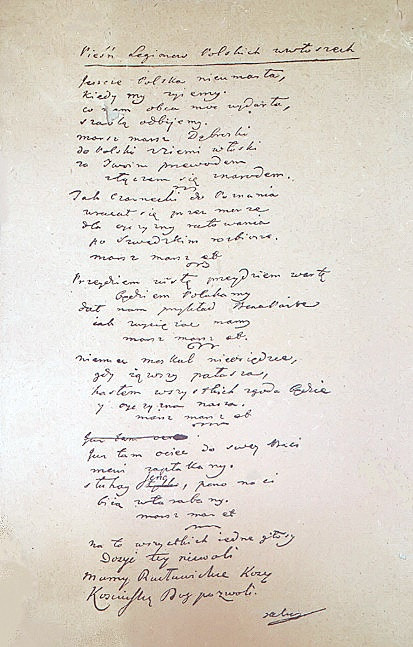 Pieśń Legionów Polskich we włoszech
Jeszcze Polska nieumarła,
kiedy my żyiemy.
co nam obca moc wydarła,
szablą odbiiemy.
marsz marsz Dąbroski
do Polski z ziemi włoski
za Twoim przewodem
złączem się z narodem.
Jak Czarnecki do Poznania
wracał się przez morze
dla oyczyzny ratowania
po Szwedzkim rozbiorze.
marsz marsz et
Przeydziem wisłę przeydziem wartę
będziem Polakamy
dał nam przykład Bonaparte
iak zwyciężać mamy
marsz marsz et.
niemiec moskal nieosiędzie,
gdy iąwszy pałasza,
hasłem wszystkich zgoda będzie
y oyczyzna nasza.
marsz marsz et
Już tam ociec
Już tam ociec do swey Basi
mówi zapłakany.
słuchay ieno, pono nasi
biią w tarabany.
marsz mar et
na to wszystkich iedne głosy
Dosyć tey niewoli
mamy Racławickie Kosy
Kosciuszkę Bog pozwoli.